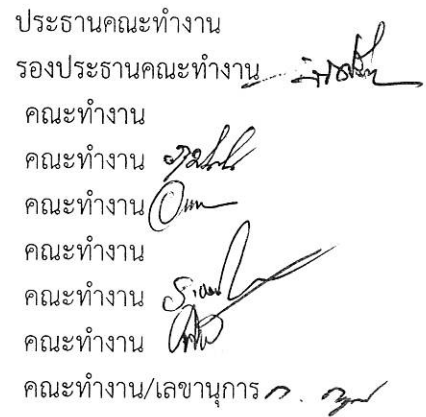 ประธานคณะทำงาน
รองประธานคณะทำงาน
คณะทำงาน
คณะทำงาน
คณะทำงาน
คณะทำงาน
คณะทำงาน
คณะทำงาน
คณะทำงาน/เลขานุการ